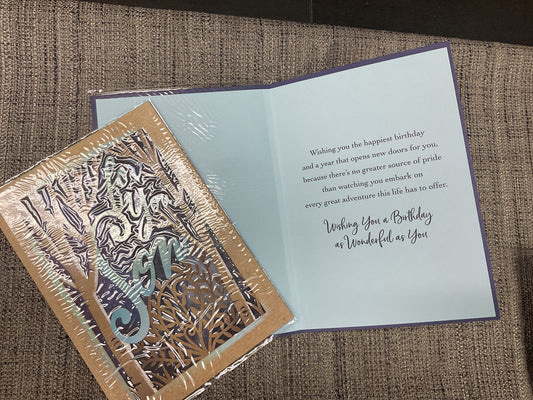 For You
Son
Wishing you the happiest birthday
and a year that opens new doors for you,
because there's no greater source of pride
than watching you embark on
every great adventure this life has to offer.
Wishing You a Birthday
as Wonderful as You